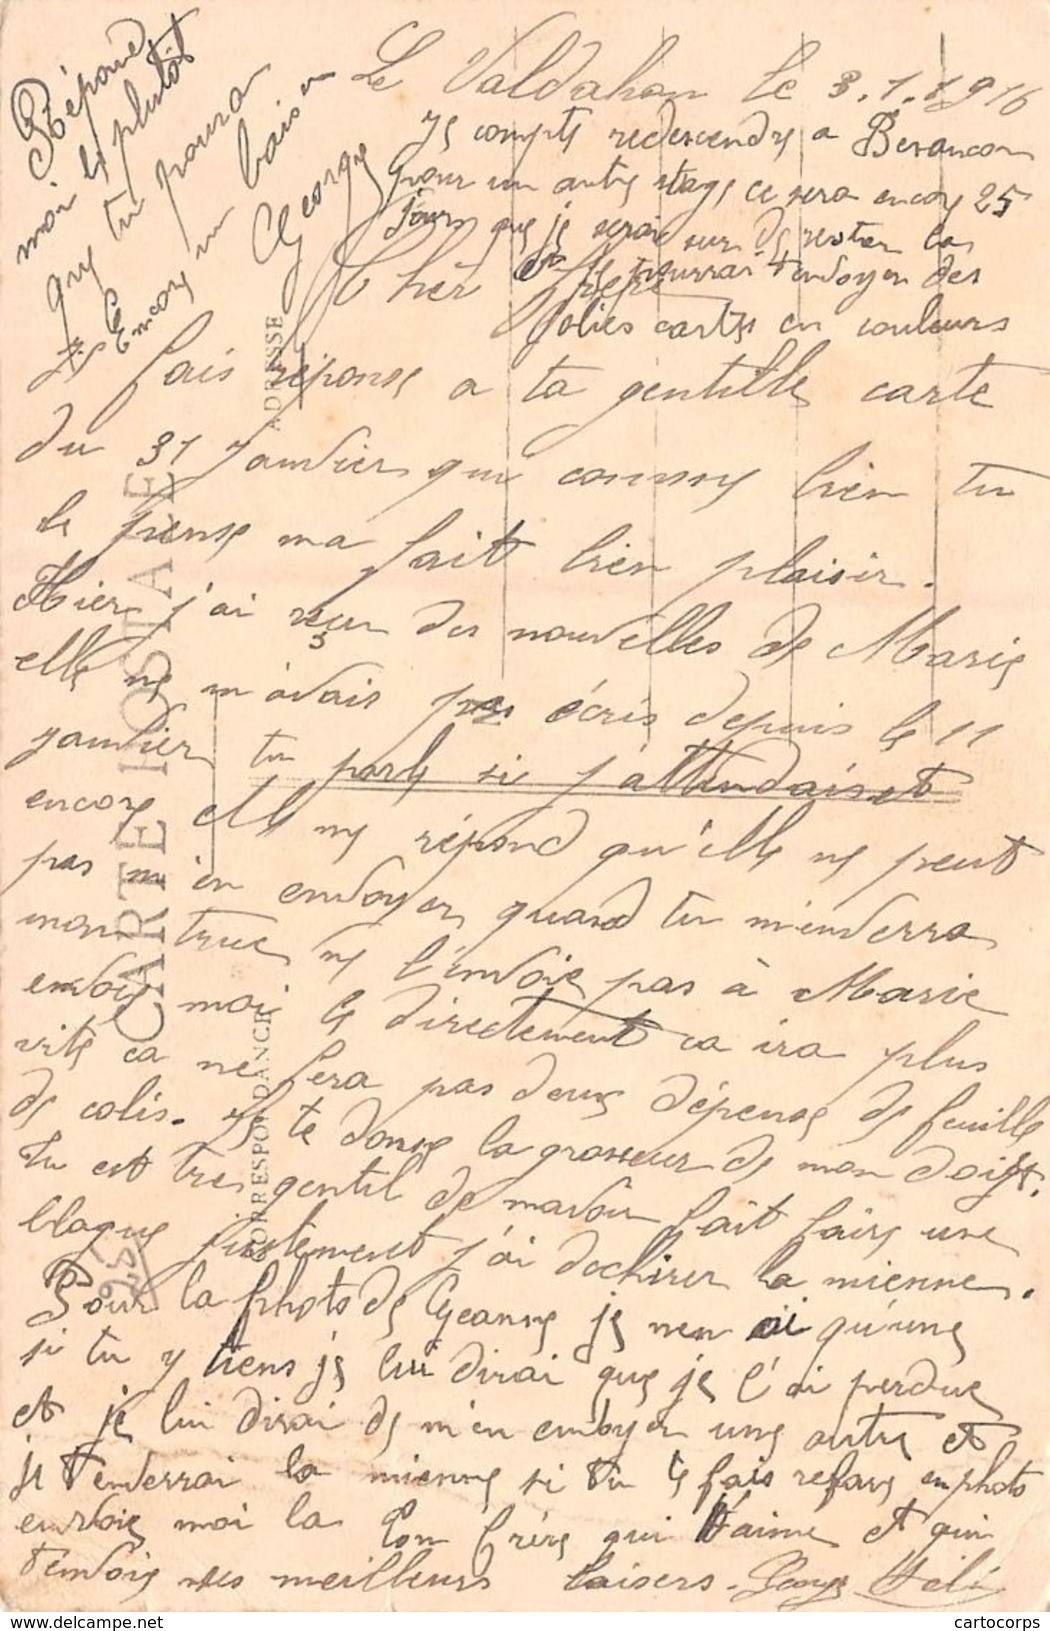 Le Valdahon le 3.1.1916
Je compte redescendre a Besancon
pour un autre stage ce sera encore 25
jours que je serai sur de rester la
et je pourrai t'envoyer des
jolies cartes en couleurs
Chèr Frere
Je fais réponse a ta gentille carte
du 31 Janvier qui comme bien tu
le pense ma fait bien plaisir.
Hier j'ai reçu des nouvelles de Marie
elle ne m'avais pas écris depuis le 11
janvier tu parle si j'attendais et
encore elle me répond qu'elle ne peut
pas m'en envoyer quand tu m'enverra
mon truc ne l'envoie pas à Marie
envoie moi le directement ca ira plus
vite ca ne fera pas deux dépense de feuille
de colis. Je te donne la grosseur de mon doigt.
Tu est tres gentil de mavoir fait faire une
blague justement j'ai dechirer la mienne.
Pour la photo de Jeanne je nen ai qu'une
si tu y tiens je lui dirai que je l'ai perdue
et je lui dirai de m'en envoyer une autre et
je t'enverrai la mienne si tu te fais refaire en photo
envoie moi la Ton frère qui t'aime et qui
t'envoie ses meilleurs baisers. Georges
Répond
moi le plutôt
que tu poura
Encore un baiser
George
CARTE POSTALE
CORRESPONDANCE
ADRESSE
cartocorps